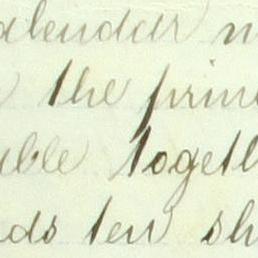 alendar m
the prin
able togeth
ds ten sh